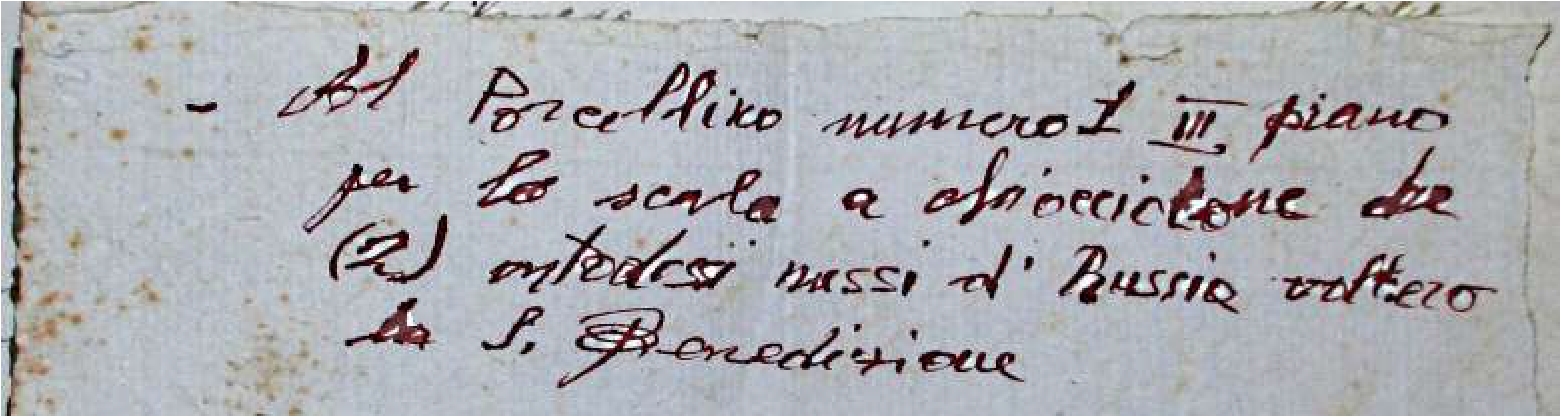 - Al Porcellino numero 1 III piano
per la scala a chiocciolone da
(2) ortodossi russi d' Russia voltero
la S. Benedizione